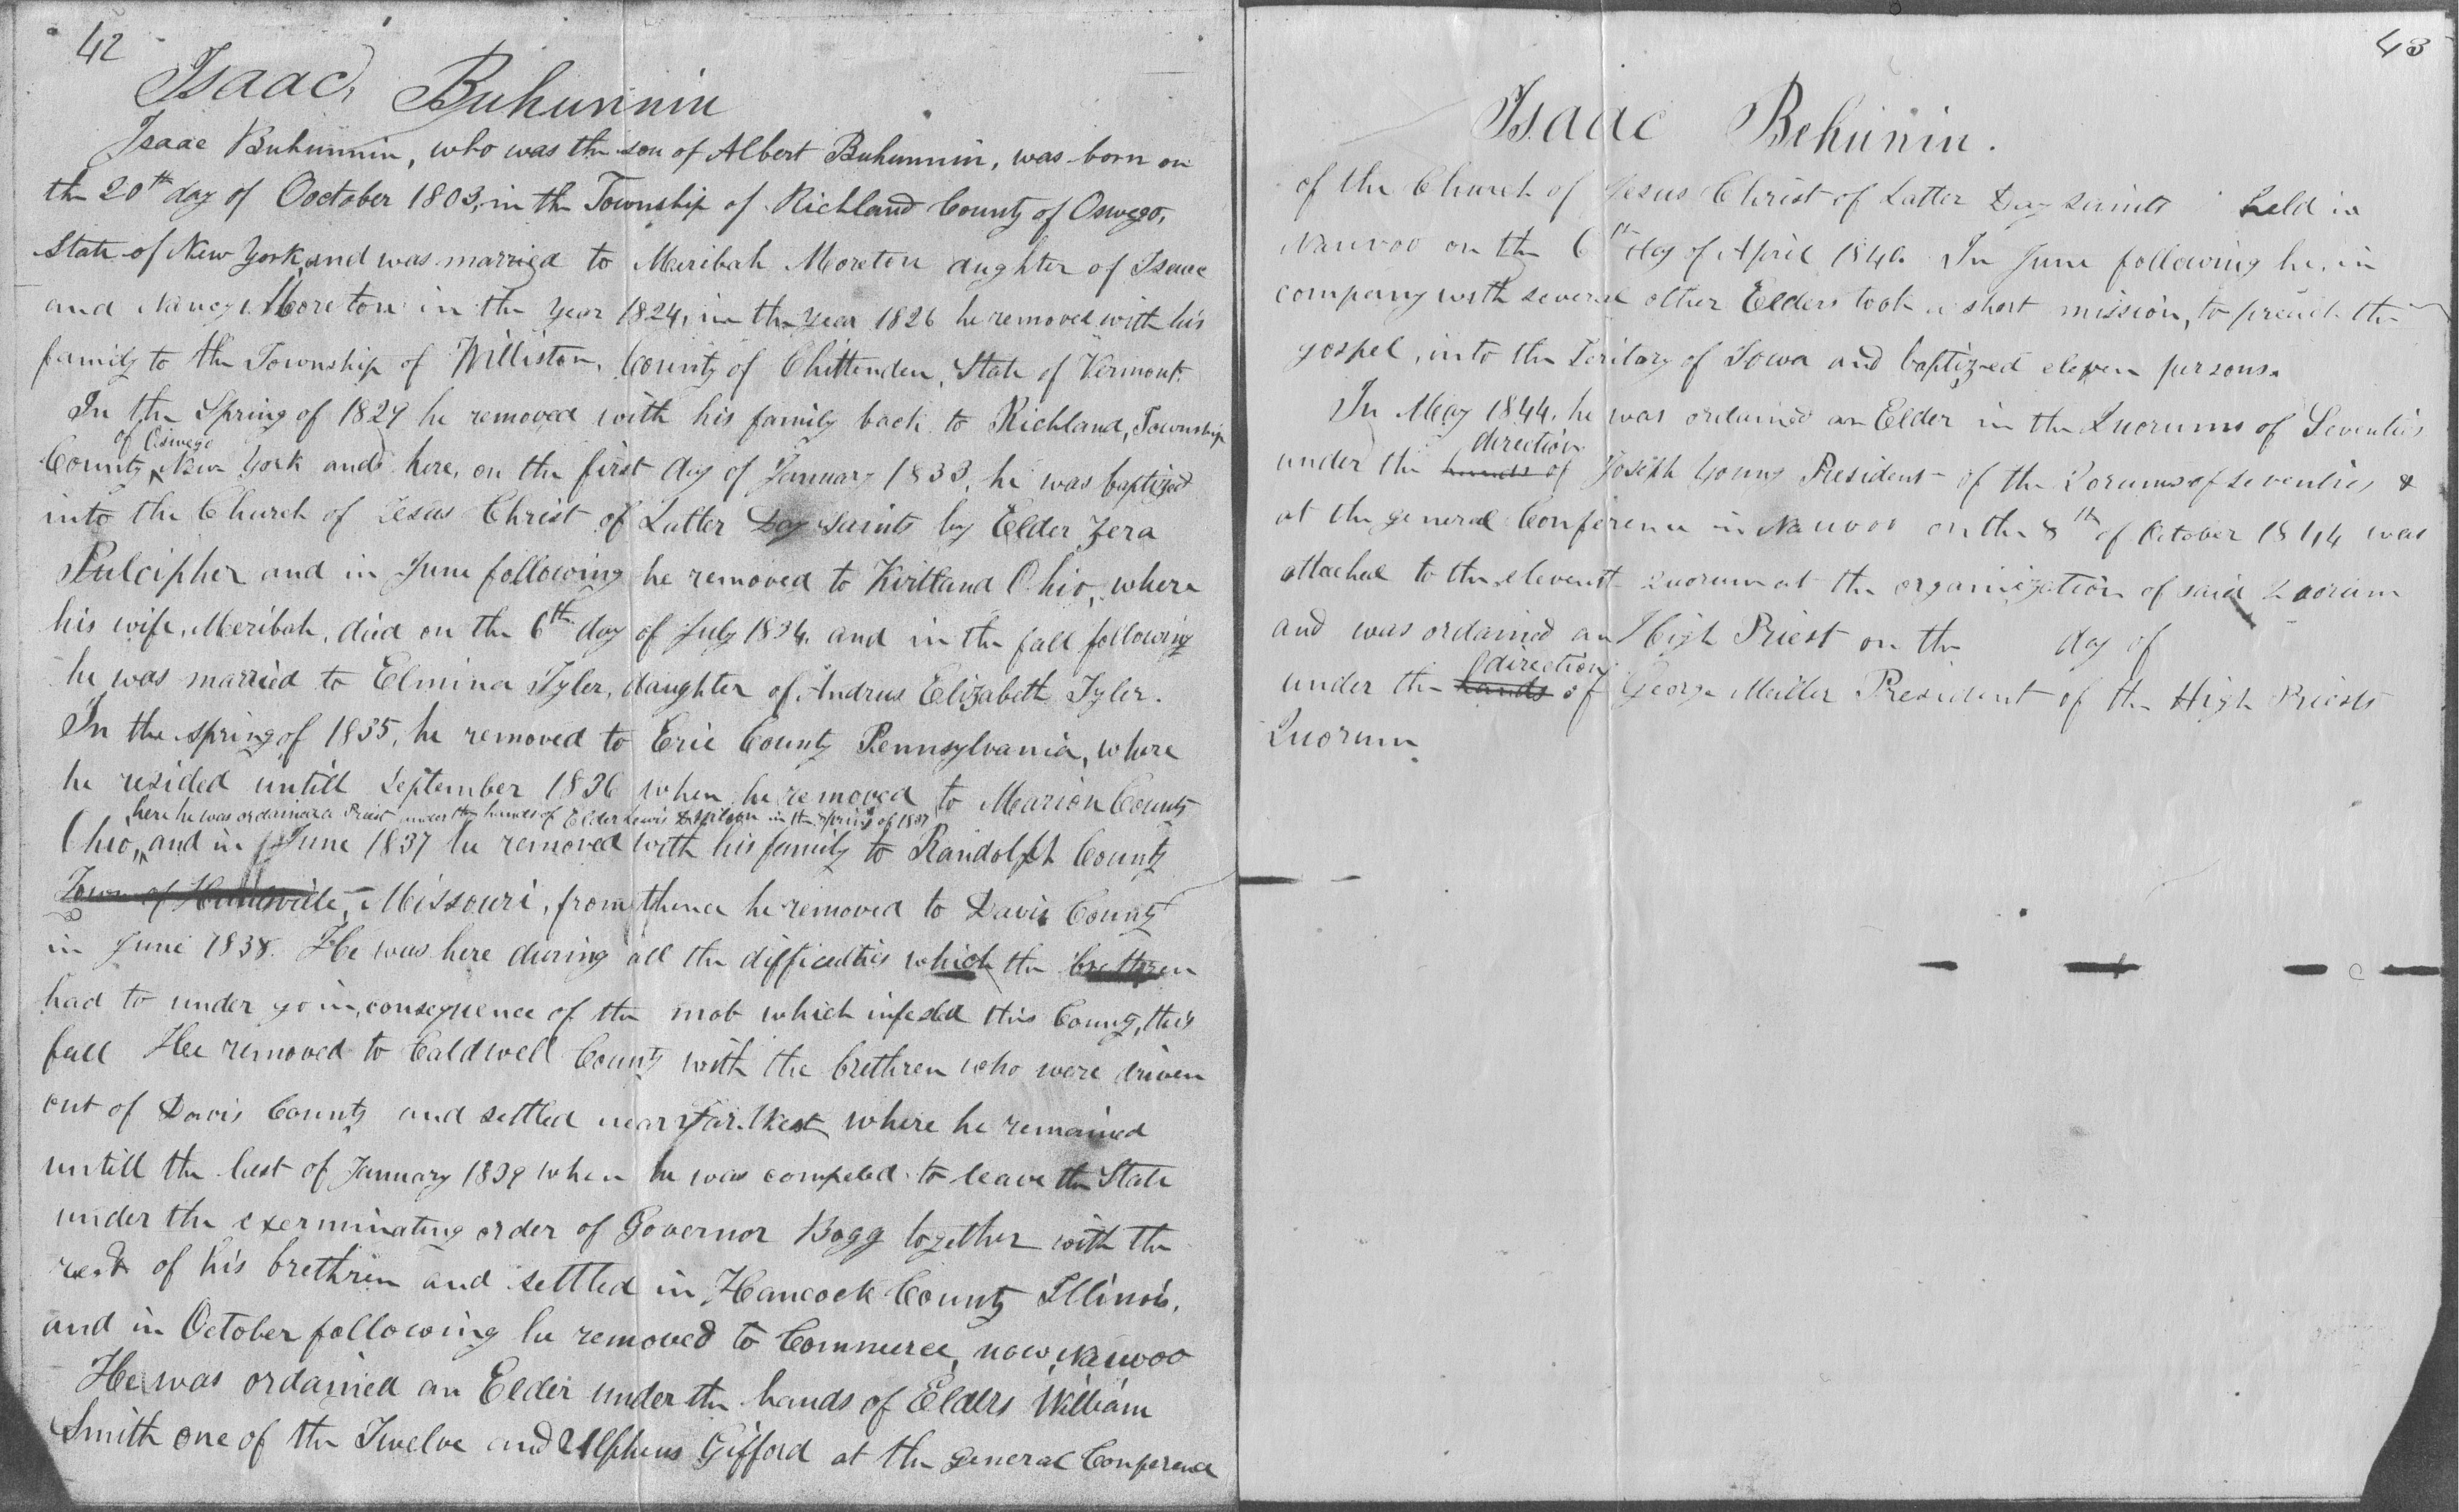 42
Isaac, Buhunnin
Isaac Buhunnin, who was the son of Albert Buhunnin, was born on
the 20th day of Ooctober 1803, in the Township of Richland County of Oswego,
State of New York, and was married to Meribah Moreton aughter of Isaac
and Nancy Moreton in the year 1824, in the year 1826 he removed with his
family to the Township of Williston, County of Chittenden, State of Vermont.
In the Spring of 1829 he removed with his family back to Richland, Township
of Oswego
County ^ New York and here, on the first day of January 1833, he was baptized
into the Church of Jesus Christ of Latter Day Saints by Elder Zera
Pulcipher and in June following he removed to Kirtland Ohio, where
his wife, Meribah, died on the 6th day of July 1834. and in the fall following
he was married to Elmina Tyler, daughter of Andrus Elizabeth Tyler.
In the spring of 1835, he removed to Erie County Pennsylvania, where
he resided untill September 1836 when he removed to Marion County
here he was ordained a Priest under the hands of Elder Lewis in the spring of 1837
Ohio, ^ and in June 1837 he removed with his family to Randolph County
Town of Huntsville, Missouri, from thence he removed to Davis County
in June 1838. He was here during all the difficulties which the brethren
had to under go in consequence of the mob which infested this County, this
fall Hee removed to Caldwell County with the brethren who were driven
out of Davis County and settled near Far West, where he remained
untill the last of January 1839 when he was compeled to leave the State
under the exerminating order of Governor Bogg together with the
rest of his brethren and settled in Hancock County Illinois,
and in October following he removed to Commerce, now Nauvoo
He was ordained an Elder under the hands of Elders William
Smith one of the Twelve and Alpheus Gifford at the general Conference
43
Isaac Behunin.
of the Church of Jesus Christ of Latter Day Saints held in
Nauvoo on the 6th day of April 184 In June following he, in
company with several other Elders took a short mission, to preach the
gospel, into the Teritary of Iowa and baptized eleven persons.
In May 1844, he was ordained an Elder in the Quorums of Seventies
direction
under the hands of Joseph Young President of the Qorums of Seventies &
at the general Conference in Nauvoo on the 8th of October 1844 was
attached to the eleventh Quorum at the organization of said Quorum
and was ordained an High Priest on the day of
direction
under the hands of George Miller President of the High Priests
Quorum.